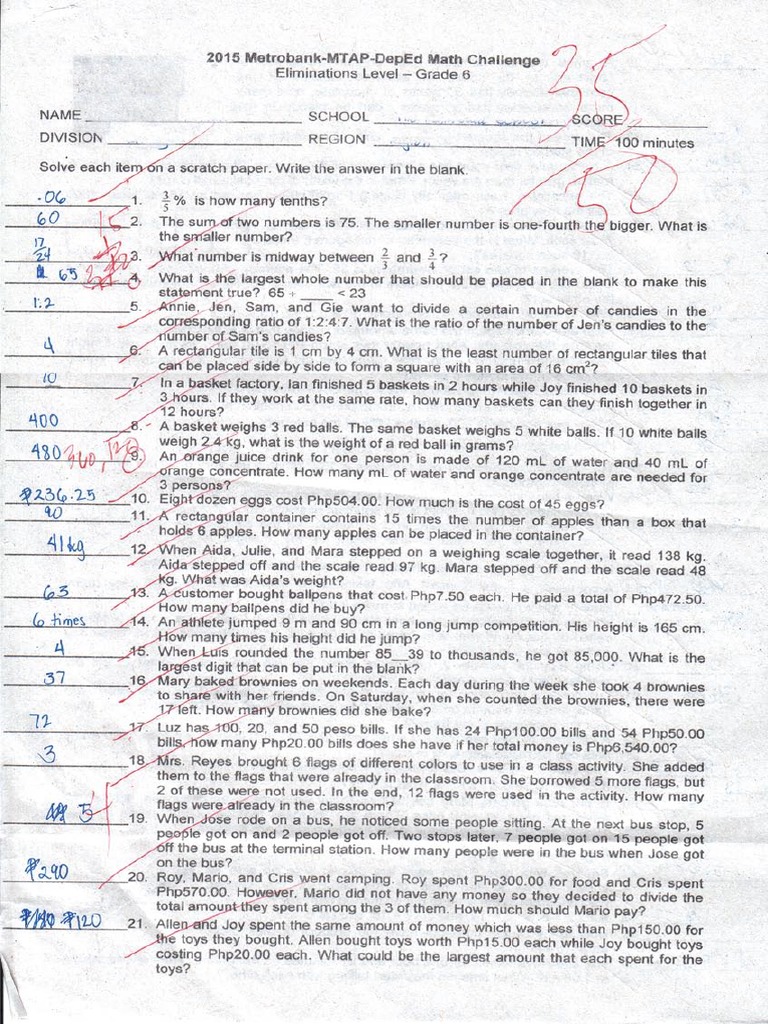 2015 Metrobank-MTAP-DepEd Math Challenge
Eliminations Level – Grade 6
35
50
NAME
SCHOOL
SCORE
DIVISION
REGION
TIME 100 minutes
Solve each item on a scratch paper. Write the answer in the blank.
.06 1. 3/5 % is how many tenths?
60 15 2. The sum of two numbers is 75. The smaller number is one-fourth the bigger. What is
the smaller number?
17/24 3. What number is midway between 2/3 and 3/4 ?
65 4. What is the largest whole number that should be placed in the blank to make this
statement true? 65 ÷ ____ < 23
1:2 5. Annie, Jen, Sam, and Gie want to divide a certain number of candies in the
corresponding ratio of 1:2:4:7. What is the ratio of the number of Jen's candies to the
number of Sam's candies?
4 6. A rectangular tile is 1 cm by 4 cm. What is the least number of rectangular tiles that
can be placed side by side to form a square with an area of 16 cm²?
10 7. In a basket factory, Ian finished 5 baskets in 2 hours while Joy finished 10 baskets in
3 hours. If they work at the same rate, how many baskets can they finish together in
12 hours?
400 8. A basket weighs 3 red balls. The same basket weighs 5 white balls. If 10 white balls
weigh 2.4 kg, what is the weight of a red ball in grams?
480 360, 120 9. An orange juice drink for one person is made of 120 mL of water and 40 mL of
orange concentrate. How many mL of water and orange concentrate are needed for
3 persons?
₱236.25 10. Eight dozen eggs cost Php504.00. How much is the cost of 45 eggs?
90 11. A rectangular container contains 15 times the number of apples than a box that
holds 6 apples. How many apples can be placed in the container?
41 kg 12. When Aida, Julie, and Mara stepped on a weighing scale together, it read 138 kg.
Aida stepped off and the scale read 97 kg. Mara stepped off and the scale read 48
kg. What was Aida's weight?
63 13. A customer bought ballpens that cost Php7.50 each. He paid a total of Php472.50.
How many ballpens did he buy?
6 times 14. An athlete jumped 9 m and 90 cm in a long jump competition. His height is 165 cm.
How many times his height did he jump?
4 15. When Luis rounded the number 85__39 to thousands, he got 85,000. What is the
largest digit that can be put in the blank?
37 16. Mary baked brownies on weekends. Each day during the week she took 4 brownies
to share with her friends. On Saturday, when she counted the brownies, there were
17 left. How many brownies did she bake?
72 17. Luz has 100, 20, and 50 peso bills. If she has 24 Php100.00 bills and 54 Php50.00
bills, how many Php20.00 bills does she have if her total money is Php6,540.00?
3 18. Mrs. Reyes brought 6 flags of different colors to use in a class activity. She added
them to the flags that were already in the classroom. She borrowed 5 more flags, but
2 of these were not used. In the end, 12 flags were used in the activity. How many
flags were already in the classroom?
5 19. When Jose rode on a bus, he noticed some people sitting. At the next bus stop, 5
people got on and 2 people got off. Two stops later, 7 people got on 15 people got
off the bus at the terminal station. How many people were in the bus when Jose got
on the bus?
₱290 20. Roy, Mario, and Cris went camping. Roy spent Php300.00 for food and Cris spent
Php570.00. However, Mario did not have any money so they decided to divide the
total amount they spent among the 3 of them. How much should Mario pay?
₱120 21. Allen and Joy spent the same amount of money which was less than Php150.00 for
the toys they bought. Allen bought toys worth Php15.00 each while Joy bought toys
costing Php20.00 each. What could be the largest amount that each spent for the
toys?